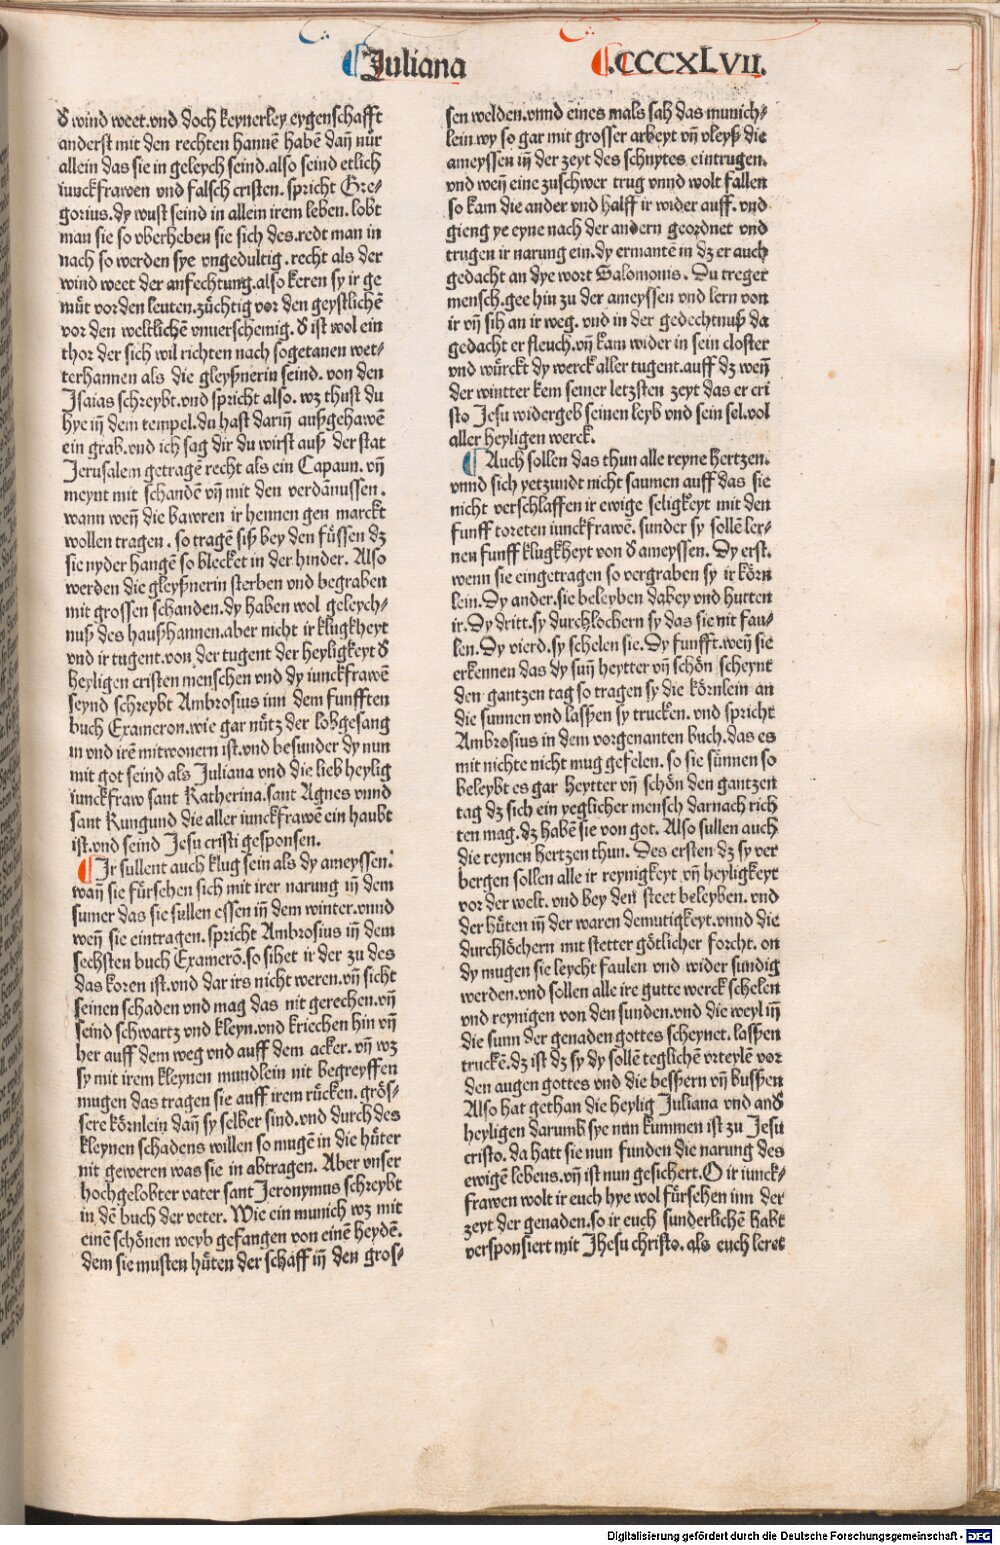 Juliana
.CCCXLVII.
đ wind weet.vnd doch keynerley eygenschafft
anderst mit den rechten hannē habē dañ nůr
allein das sie in geleych seind.also seind etlich
iunckfrawen vnd falsch cristen.spricht Gre⸗
gorius.dy wust seind in allem irem leben.lobt
man sie so vberheben sie sich des.redt man in
nach so werden sye vngedultig.recht als der
wind weet der anfechtung.also keren sy ir ge
můt vor den leuten.züchtig vor den geystlichē
vor den weltlichē vnuerschemig.đ ist wol ein
thor der sich wil richten nach sogetanen wet⸗
terhannen als die gleyßnerin seind.von den
Isaias schreybt.vnd spricht also.wz thust du
hye iñ dem tempel.du hast dariñ außgehawē
ein grab.vnd ich sag dir du wirst auß der stat
Jerusalem getragē recht als ein Capaun.vñ
meynt mit schandē vñ mit den verdānussen.
wann weñ die bawren ir hennen gen marckt
wollen tragen.so tragē siß bey den fůssen dz
sie nyder hangē so blecket in der hinder. Also
werden die gleyßnerin sterben vnd begraben
mit grossen schanden.dy haben wol geleych⸗
nuß des haußhannen.aber nicht ir klugkheyt
vnd ir tugent.von der tugent der heyligkeyt đ
heyligen cristen menschen vnd dy iunckfrawē
seynd schreybt Ambrosius inn dem funfften
buch Exameron.wie gar nůtz der lobgesang
in vnd irē mitwonern ist.vnd besunder dy nun
mit got seind als Juliana vnd die lieb heylig
iunckfraw sant Katherina.sant Agnes vnnd
sant Kungund die aller iunckfrawē ein haubt
ist.vnd seind Jesu cristi gesponsen.
Ir sullent auch klug sein als dy ameyssen.
wañ sie fůrsehen sich mit irer narung iñ dem
sumer das sie sullen essen iñ dem winter.vnnd
weñ sie eintragen.spricht Ambrosius iñ dem
sechsten buch Examerō.so sihet ir der zu des
das koren ist.vnd dar irs nicht weren.vñ sicht
seinen schaden vnd mag das nit gerechen.vñ
seind schwartz vnd kleyn.vnd kriechen hin vñ
her auff dem weg vnd auff dem acker.vñ wz
sy mit irem kleynen mundlein nit begreyffen
mugen das tragen sie auff irem růcken.grös⸗
sere körnlein dañ sy selber sind.vnd durch des
kleynen schadens willen so mugē in die hůter
nit geweren was sie in abtragen. Aber vnser
hochgelobter vater sant Jeronymus schreybt
in dē buch der veter. Wie ein munich wz mit
einē schönen weyb gefangen von einē heydē.
dem sie musten hůten der schaff iñ den gros⸗
sen welden.vnnd eines mals sah das munich⸗
lein wy so gar mit grosser arbeyt vñ vleyß die
ameyssen iñ der zeyt des schnytes eintrugen.
vnd weñ eine zuschwer trug vnnd wolt fallen
so kam die ander vnd halff ir wider auff.vnd
gieng ye eyne nach der andern geordnet vnd
trugen ir narung ein.dy ermantē in dz er auch
gedacht an dye wort Salomonis. Du treger
mensch.gee hin zu der ameyssen vnd lern von
ir vñ sih an ir weg.vnd in der gedechtnuß da
gedacht er fleuch.vñ kam wider in sein closter
vnd wůrckt dy werck aller tugent.auff dz weñ
der wintter kem seiner letzsten zeyt das er cri
sto Jesu widergeb seinen leyb vnd sein sel.vol
aller heyligen werck.
Auch sollen das thun alle reyne hertzen.
vnnd sich yetzundt nicht saumen auff das sie
nicht verschlaffen ir ewige seligkeyt mit den
funff toreten iunckfrawē.sunder sy sollē ler⸗
nen funff klugkheyt von đ ameyssen. Dy erst.
wenn sie eingetragen so vergraben sy ir körn
lein.Dy ander.sie beleyben dabey vnd hutten
ir.Dy dritt.sy durchlöchern sy das sie nit fau⸗
len.Dy vierd.sy schelen sie.Dy funfft.weñ sie
erkennen das dy suñ heytter vñ schön scheynt
den gantzen tag so tragen sy die körnlein an
die sunnen vnd laßen sy trucken.vnd spricht
Ambrosius in dem vorgenanten buch.das es
mit nichte nicht mug gefelen.so sie sünnen so
beleybt es gar heytter vñ schön den gantzen
tag dz sich ein yeglicher mensch darnach rich
ten mag.dz habē sie von got. Also sullen auch
die reynen hertzen thun. Des ersten dz sy ver
bergen sollen alle ir reynigkeyt vñ heyligkeyt
vor der welt.vnd bey den steet beleyben.vnd
der hůten iñ der waren demutigkeyt.vnnd die
durchlöchern mit stetter götlicher forcht.on
dy mugen sie leycht faulen vnd wider sundig
werden.vnd sollen alle ire gutte werck schelen
vnd reynigen von den sunden.vnd die weyl iñ
die sunn der genaden gottes scheynet.laßen
truckē.dz ist dz sy dy sollē teglichē vrteylē vor
den augen gottes vnd die beßern vñ bußen
Also hat gethan die heylig Juliana vnd anđ
heyligen darumb sye nun kummen ist zu Jesu
cristo.da hatt sie nun funden die narung des
ewigē lebens.vñ ist nun gesichert.O ir iunck⸗
frawen wolt ir euch hye wol fůrsehen inn der
zeyt der genaden.so ir euch sunderlichē habt
versponsiert mit Jhesu christo.als euch leret
Digitalisierung gefördert durch die Deutsche Forschungsgemeinschaft - DFG